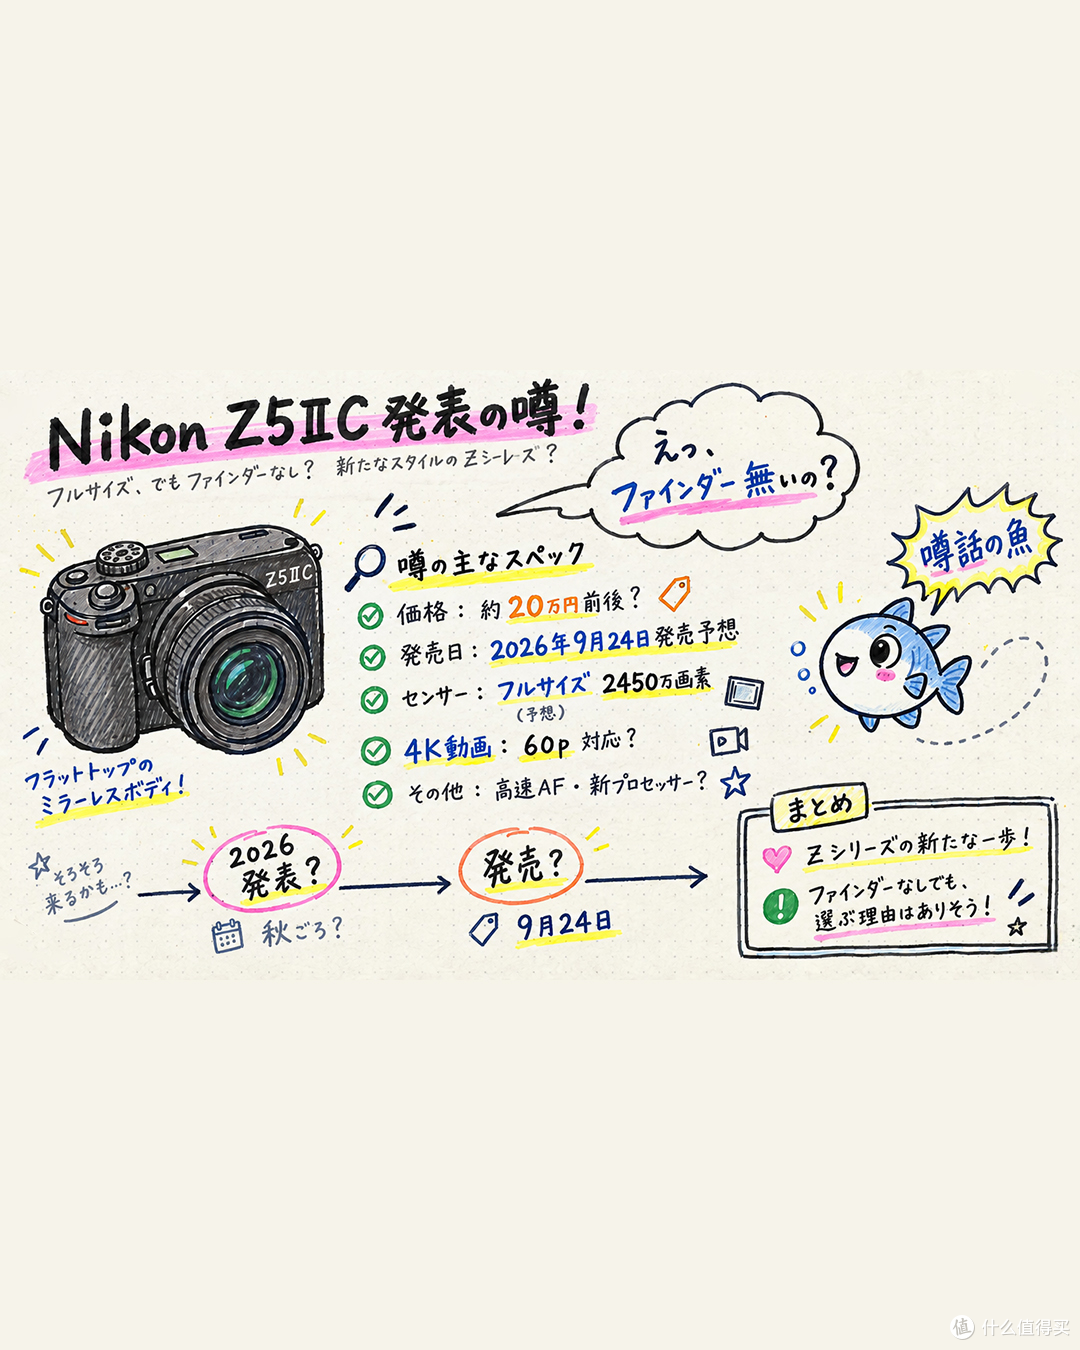 Nikon Z5ⅡC 発表の噂!
フルサイズ、でもファインダーなし? 新たなスタイルのZシリーズ?
えっ、
ファインダー無いの?
噂話の魚
Z5ⅡC
フラットトップの
ミラーレスボディ!
噂の主なスペック
価格: 約20万円前後?
発売日: 2026年9月24日発売予想
センサー: フルサイズ 2450万画素
(予想)
4K動画: 60p 対応?
その他: 高速AF・新プロセッサー?
そろそろ
来るかも…?
2026
発表?
秋ごろ?
発売?
9月24日
まとめ
Zシリーズの新たな一歩!
ファインダーなしでも、
選ぶ理由はありそう!
值 什么值得买